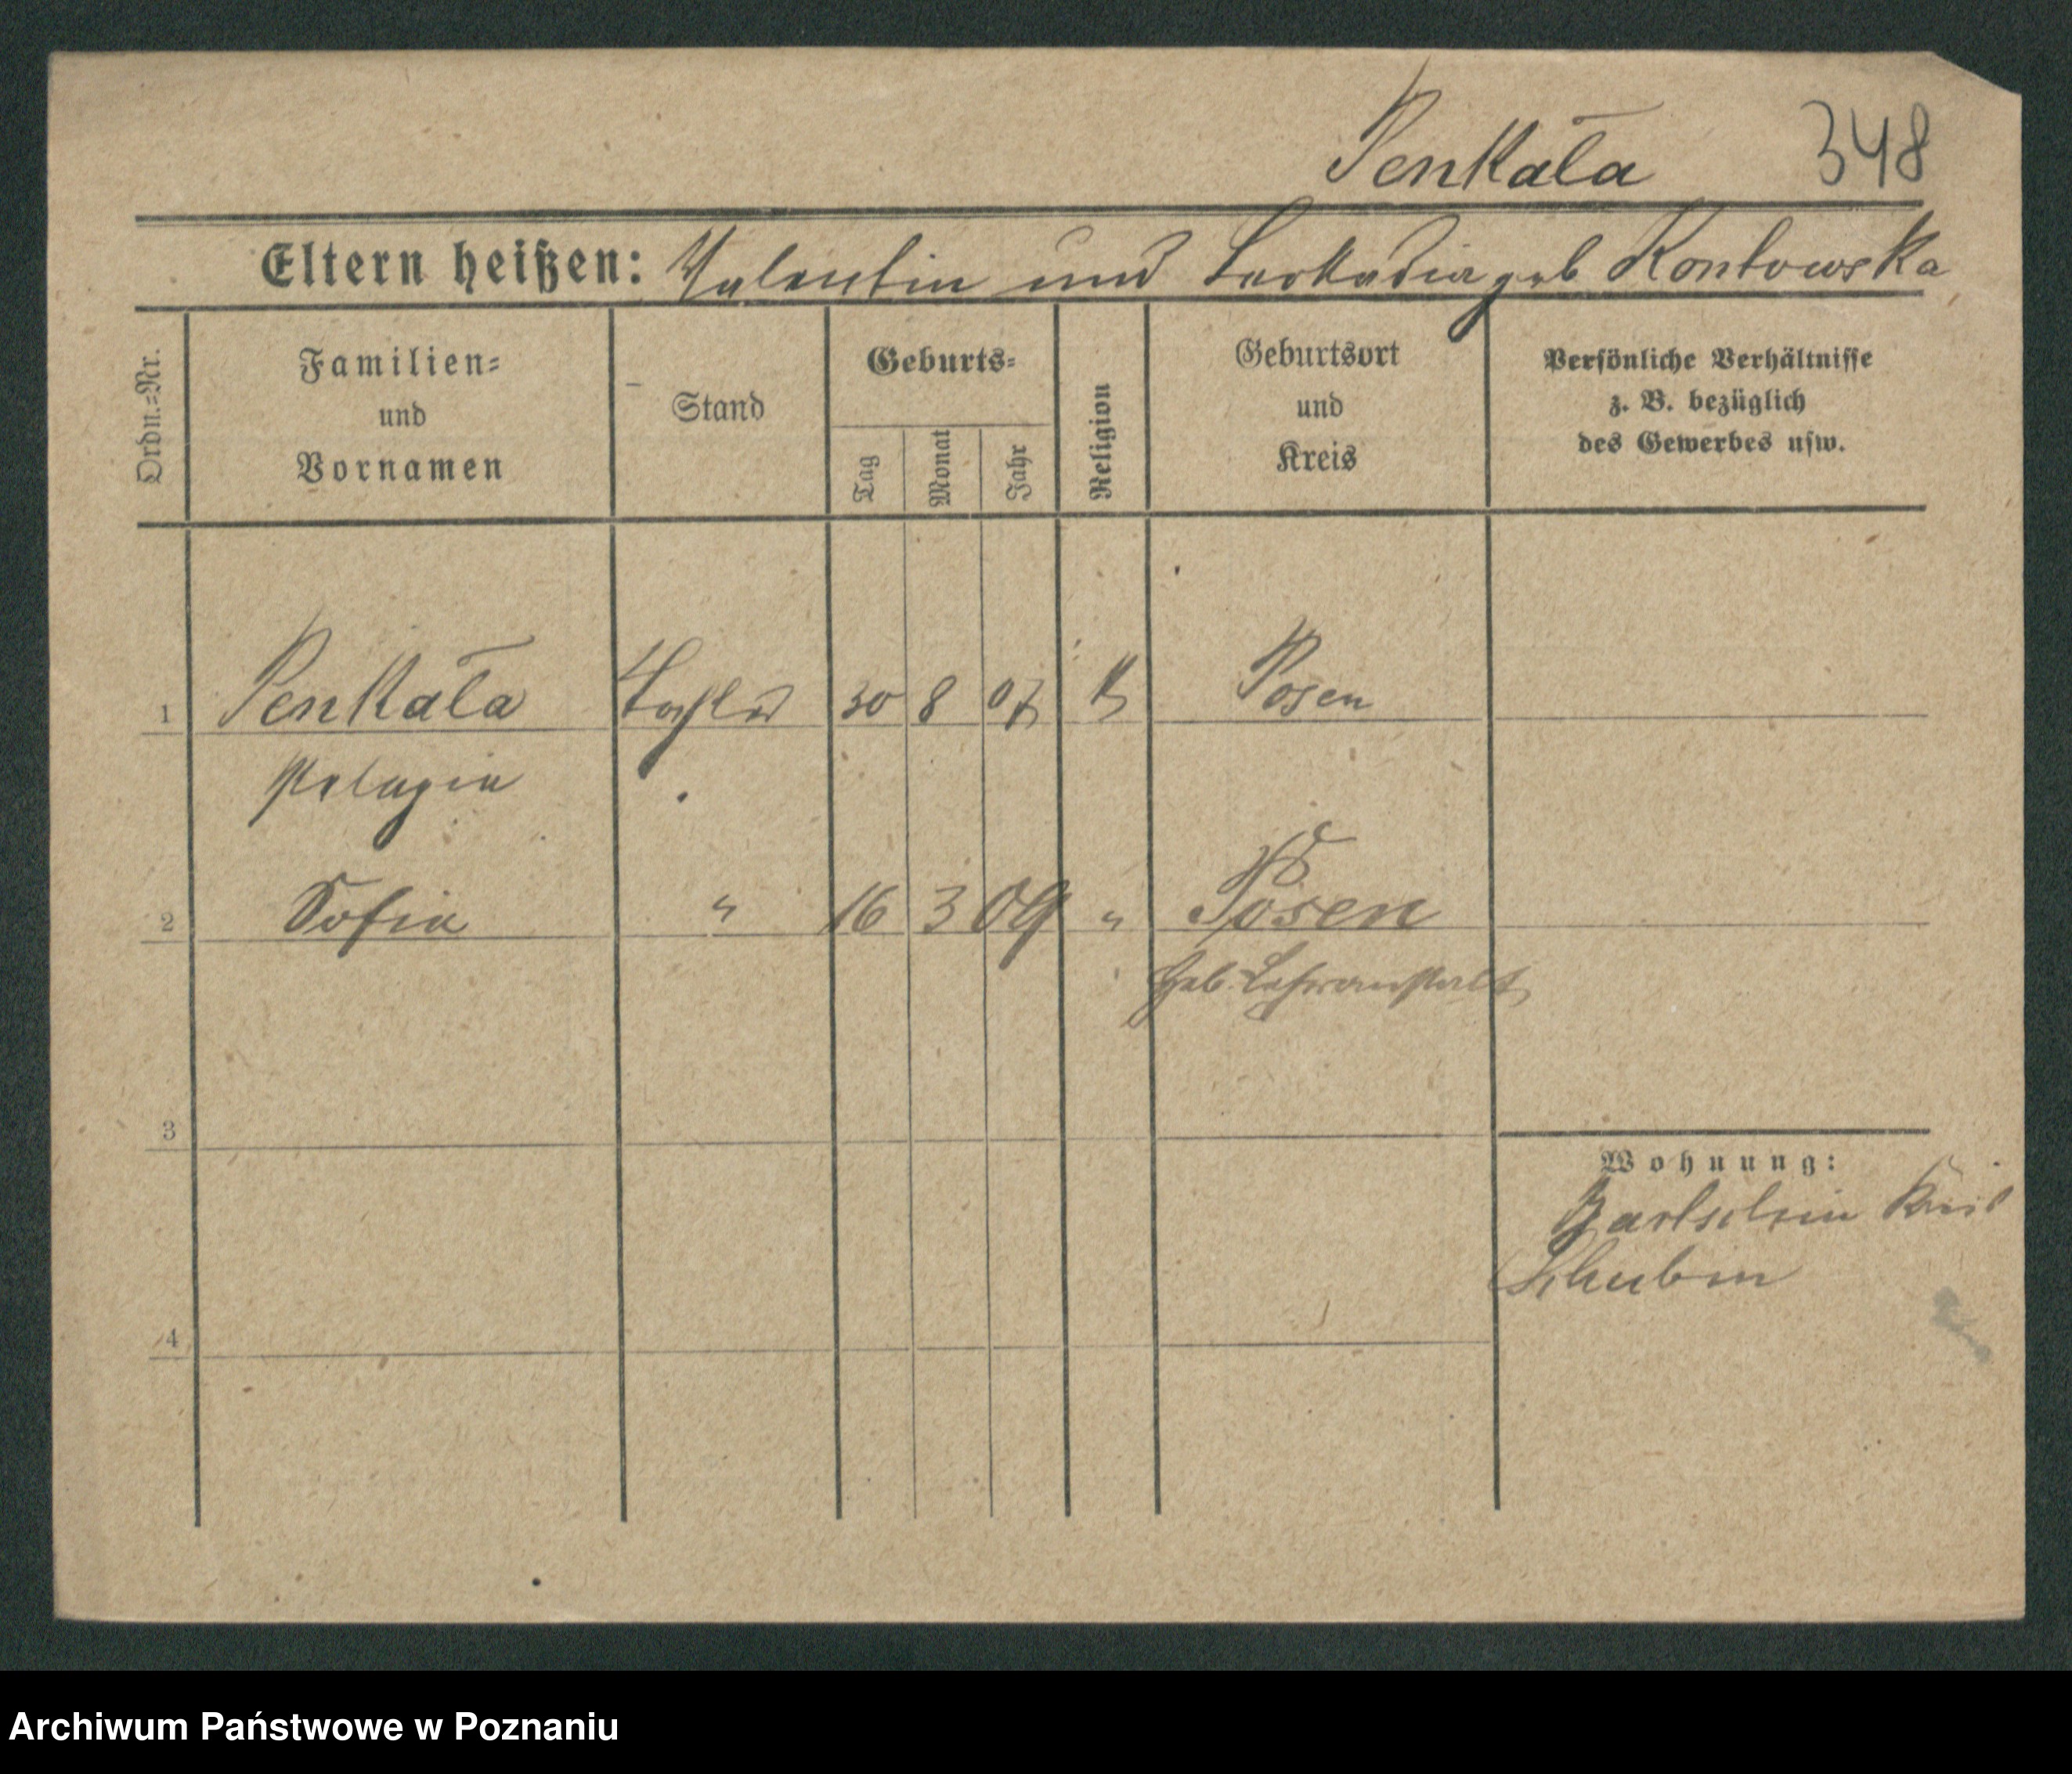 Penkała 348
Eltern heißen: Valentin und Leokadia geb Kontowska
Ordn.=Nr.
Familien=
und
Vornamen
Stand
Geburts=
Tag
Monat
Jahr
Religion
Geburtsort
und
Kreis
Persönliche Verhältnisse
z. B. bezüglich
des Gewerbes usw.
1 Penkała Tochter 30 8 07 K Posen
Pelagia
2 Sofia " 16 3 09 " Posen
Heb. Lehranstalt
3
Wohnung:
Bartschin Kreis
Schubin
4
Archiwum Państwowe w Poznaniu